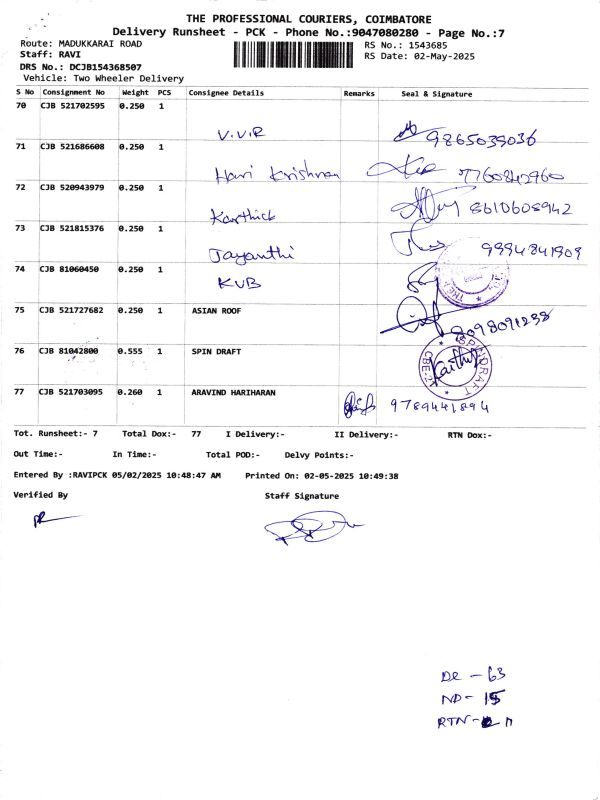 THE PROFESSIONAL COURIERS, COIMBATORE
Delivery Runsheet - PCK - Phone No.:9047080280 - Page No.:7
Route: MADUKKARAI ROAD RS No.: 1543685
Staff: RAVI RS Date: 02-May-2025
DRS No.: DCJB154368507
Vehicle: Two Wheeler Delivery
S No Consignment No Weight PCS Consignee Details Remarks Seal & Signature
70 CJB 521702595 0.250 1
V.V.R 9865039036
71 CJB 521686608 0.250 1
Hari Krishnan 7760842960
72 CJB 520943979 0.250 1
Karthick 8610608942
73 CJB 521815376 0.250 1
Jayanthi 9994841909
74 CJB 81060450 0.250 1
KVB
75 CJB 521727682 0.250 1 ASIAN ROOF
8098091238
76 CJB 81042800 0.555 1 SPIN DRAFT
SPIN DRAFT
77 CJB 521703095 0.260 1 ARAVIND HARIHARAN
9789441894
Tot. Runsheet:- 7 Total Dox:- 77 I Delivery:- II Delivery:- RTN Dox:-
Out Time:- In Time:- Total POD:- Delvy Points:-
Entered By :RAVIPCK 05/02/2025 10:48:47 AM Printed On: 02-05-2025 10:49:38
Verified By Staff Signature
De - 63
ND - 15
RTN -